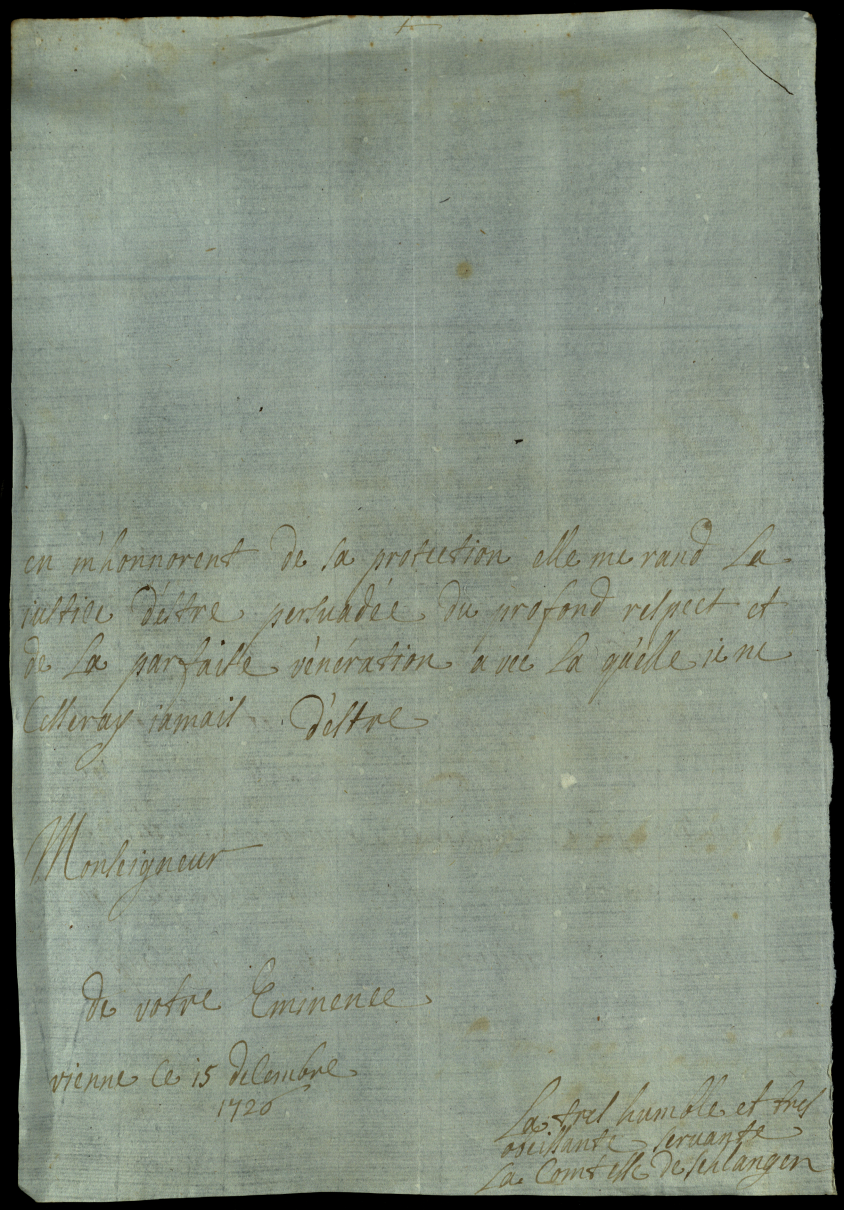 en m'honnorent de sa protection elle me rand La
iustice d'estre persuadée du profond respect et
de La parfaite vénération avec La qu'elle ie ne
Cesseray iamais d'estre
Monseigneur
de votre Eminence
vienne Ce 15 decembre
1726
La tres humble et tres
obeissante servante
La Comtesse de